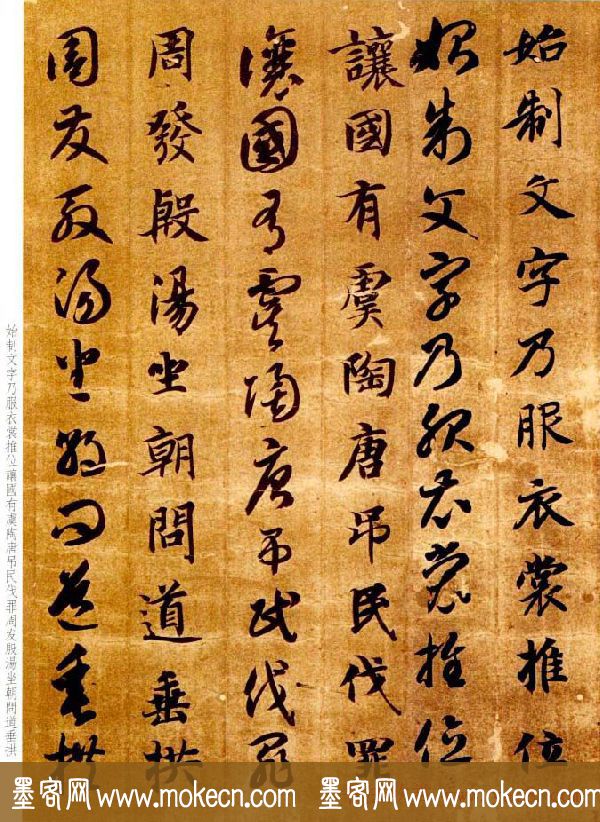 始制文字乃服衣裳推位
始制文字乃服衣裳推位
讓國有虞陶唐吊民伐罪
讓國有虞陶唐吊民伐罪
周發殷湯坐朝問道垂拱
周發殷湯坐朝問道垂拱
始制文字乃服衣裳推位讓國有虞陶唐吊民伐罪周发殷湯坐朝問道垂拱
墨客网 www.mokecn.com 墨客网 www.mokecn.com